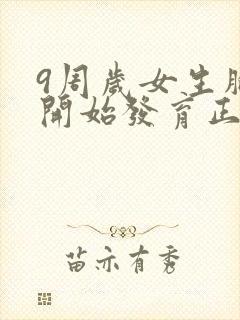 9周歲女生
開始發育正
苗亦有秀